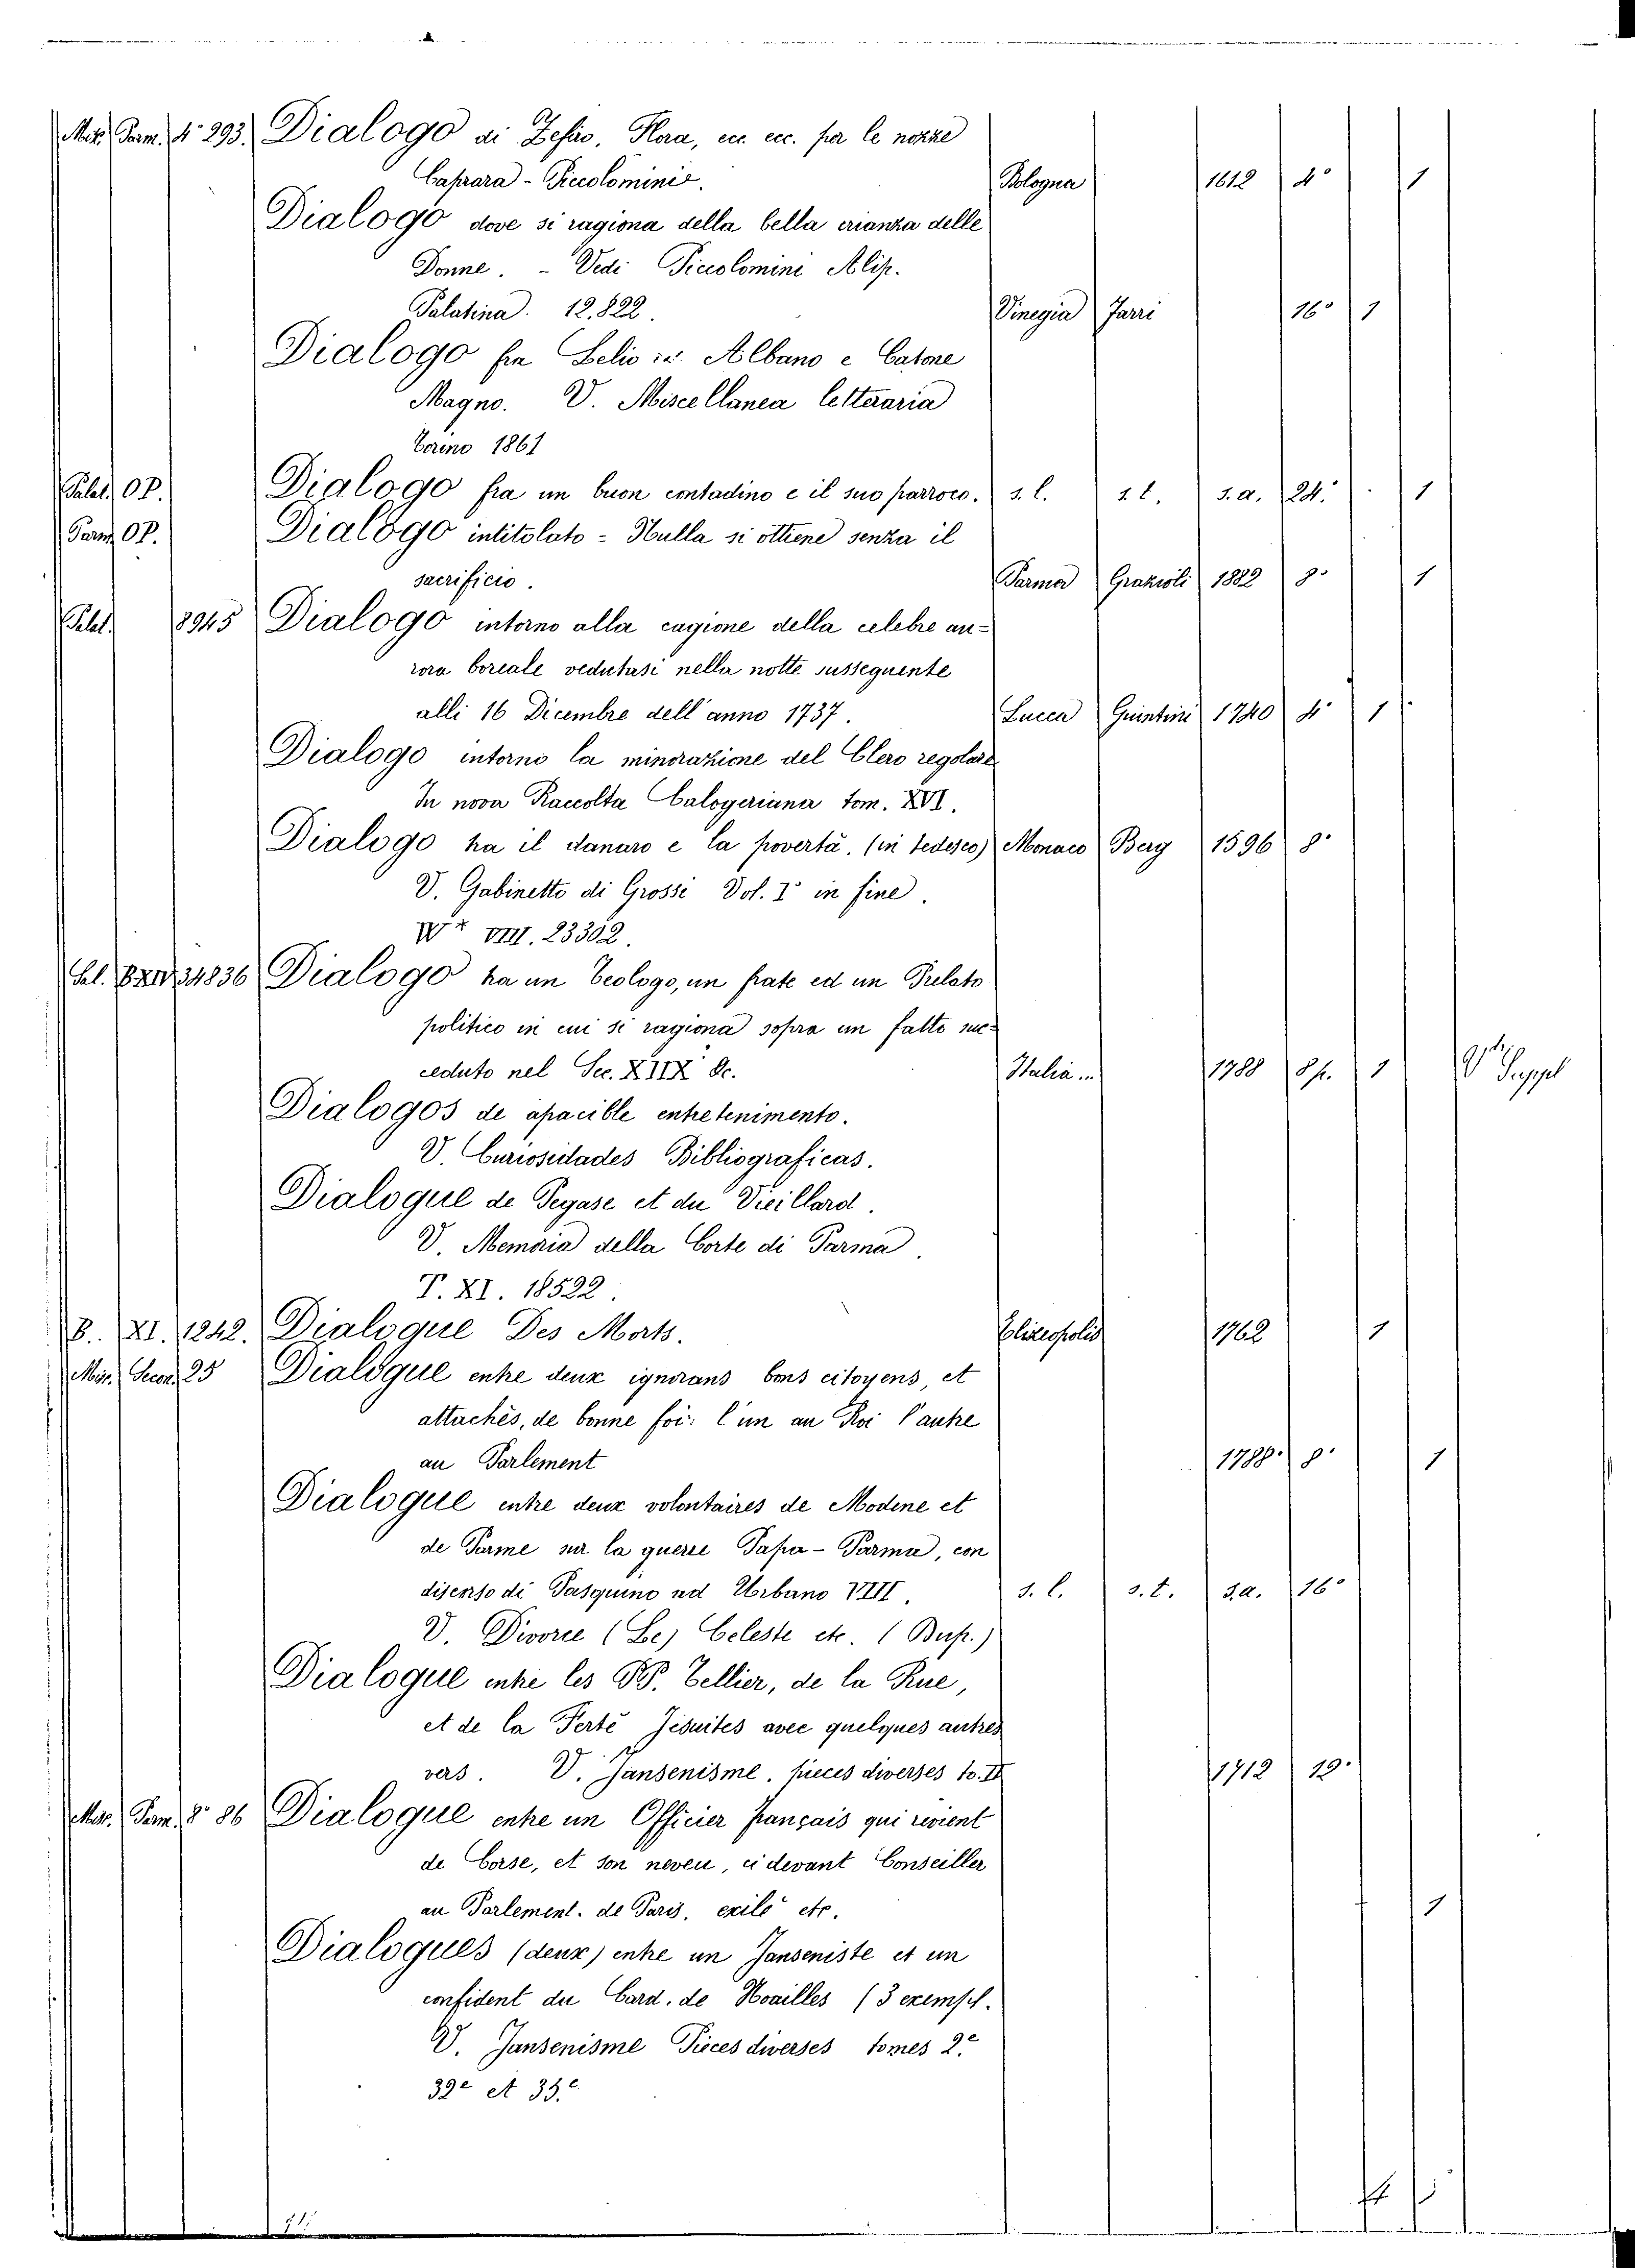 Misc. Parm. 4° 293. Dialogo di Zefiro, Flora, ecc. ecc. per le nozze
Caprara - Piccolomini. Bologna 1612 4° 1
Dialogo dove si ragiona della bella crianza delle
Donne. - Vedi Piccolomini Aless.
Palatina. 12.822. Vinegia 16° 1
Dialogo fra Lelio Albano e Catone
Magno. V. Miscellanea letteraria
Torino 1861
Palat. OP. Dialogo fra un buon contadino e il suo parroco. s. l. s. t. s. a. 24° 1
Parm. OP. Dialogo intitolato - Nulla si ottiene senza il
sacrificio. Parma Grazioli 1882 8° 1
Palat. 8945 Dialogo intorno alla cagione della celebre au-
rora boreale vedutasi nella notte sussequente
alli 16 Dicembre dell'anno 1737. Lucca Guintini 1740 4° 1
Dialogo intorno la minorazione del Clero regolare
In nova Raccolta Calogeriana tom. XVI.
Dialogo tra il danaro e la povertà. (in tedesco) Monaco Berg 1596 8°
V. Gabinetto di Grossi Vol. I° in fine.
VIII. 23302.
34836 Dialogo tra un teologo, un frate ed un Prelato
politico in cui si ragiona sopra un fatto suc-
ceduto nel Sec. XIIX &c. Italia... 1788 8p. 1 Suppl
Dialogos de apacible entretenimento.
V. Curiosidades Bibliograficas.
Dialogue de Pegase et du Vieillard.
V. Memoria della Corte di Parma.
T. XI. 18522.
B. XI. 1242. Dialogue Des Morts. Elizeopolis 1762 1
Misc. Secon. 25 Dialogue entre deux ignorans bons citoyens, et
attachés, de bonne foi: l'un au Roi l'autre
au Parlement 1788. 8° 1
Dialogue entre deux volontaires de Modene et
de Parme sur la querce Papa - Parma, con
discorso di Pasquino ad Urbano VIII. s. l. s. t. s.a. 16°
V. Divorce (Le) Celeste etc. (Bup.)
Dialogue entre les PP. Tellier, de la Rue,
et de la Ferté Jésuites avec quelques autres
vers. V. Jansenisme. pieces diverses to. II 1712 12.
Misc. Parm. 8° 86 Dialogue entre un Officier français qui revient
de Corse, et son neveu, ci devant Conseiller
au Parlement. de Paris, exilé etc. 1
Dialogues (deux) entre un Janseniste et un
confident du Card. de Noailles (3 exempl.
V. Jansenisme Pieces diverses tomes 2e
32e et 35.e